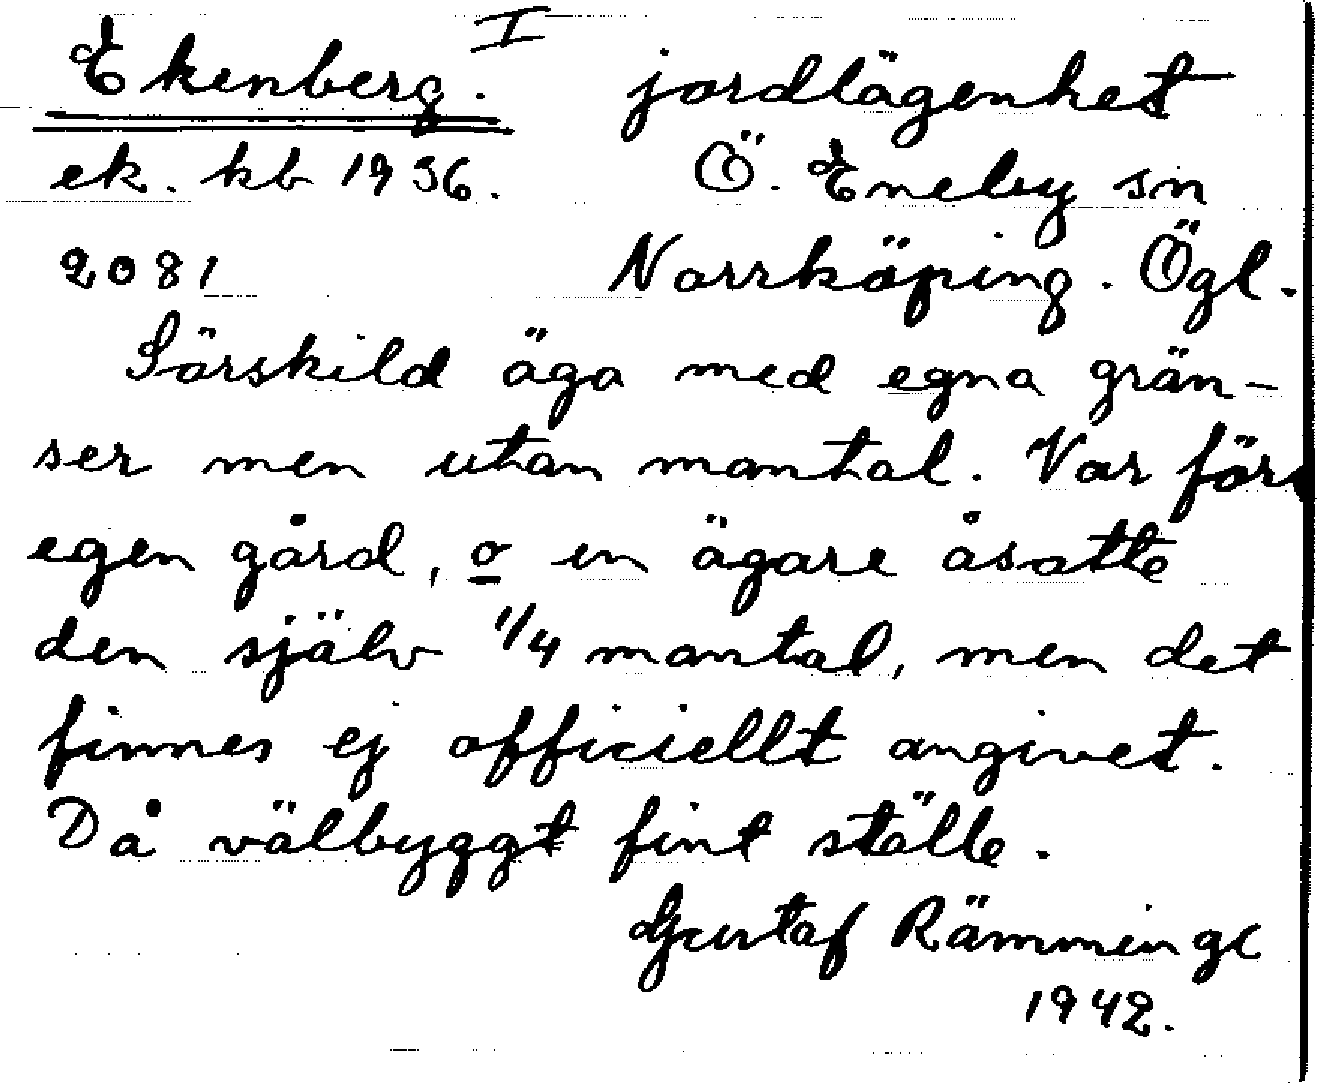 Ekenberg. I jordlägenhet
ek. kb 1936. Ö. Eneby sn
2081 Norrköping. Ögl.
Särskild äga med egna grän-
ser men utan mantal. Var förr
egen gård, o en ägare åsatte
den själv 1/4 mantal, men det
finnes ej officiellt angivet.
Då välbyggt fint ställe.
Gustaf Ramminge
1942.